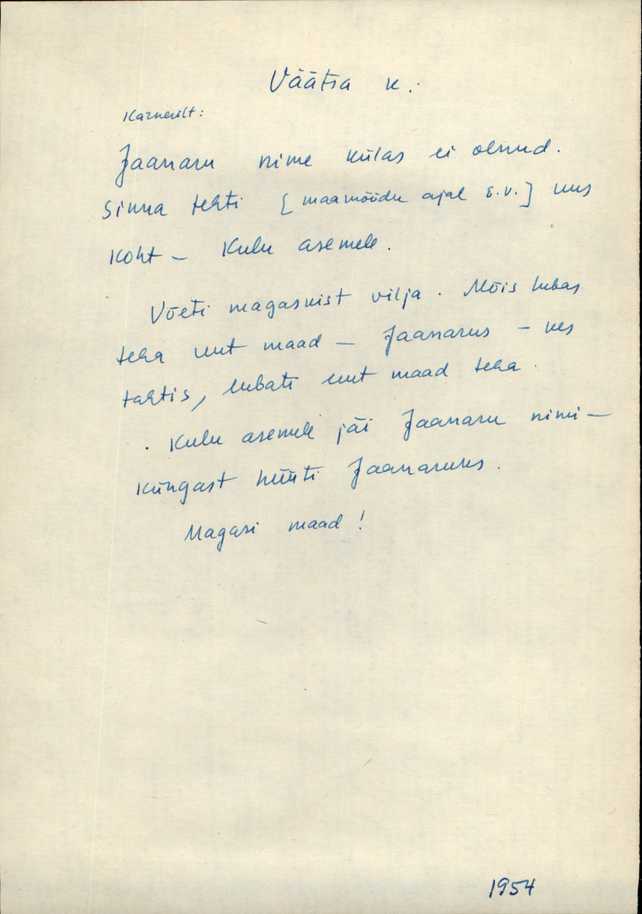 Väätsa k.
Karnerilt:
Jaanaru nime külas ei olnud.
Sinna tehti [maamõõdu ajal s.v.] uus
koht – Kulu asemele.
Võeti magasnist vilja. Mõis lubas
teha uut maad – Jaanarus – kes
tahtis, lubati uut maad teha.
Kulu asemele jäi Jaanaru nimi –
küngast hüüti Jaanaruks.
Magasi maad!
1954